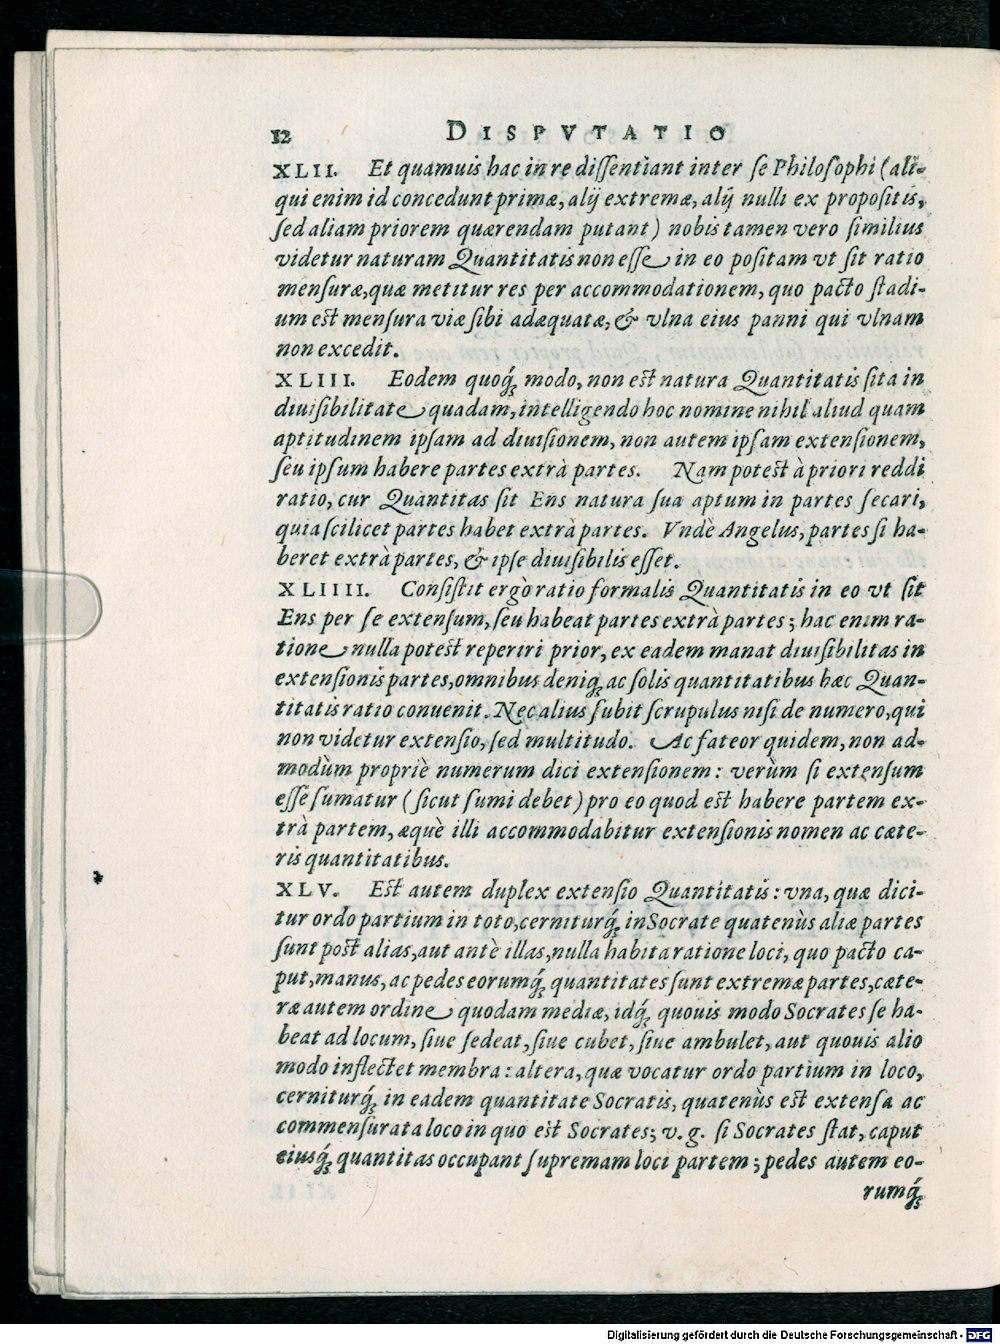 12 DISPVTATIO
XLII. Et quamuis hac in re dissentiant inter se Philosophi (ali-
qui enim id concedunt primæ, alij extremæ, alij nulli ex propositis,
sed aliam priorem quærendam putant) nobis tamen vero similius
videtur naturam Quantitatis non esse in eo positam vt sit ratio
mensuræ, quæ metitur res per accommodationem, quo pacto stadi-
um est mensura viæ sibi adæquatæ, & vlna eius panni qui vlnam
non excedit.
XLIII. Eodem quoq́ꝫ modo, non est natura Quantitatis sita in
diuisibilitate quadam, intelligendo hoc nomine nihil aliud quam
aptitudinem ipsam ad diuisionem, non autem ipsam extensionem,
seu ipsum habere partes extrà partes. Nam potest à priori reddi
ratio, cur Quantitas sit Ens natura sua aptum in partes secari,
quia scilicet partes habet extrà partes. Vndè Angelus, partes si ha-
beret extrà partes, & ipse diuisibilis esset.
XLIIII. Consistit ergò ratio formalis Quantitatis in eo vt sit
Ens per se extensum, seu habeat partes extrà partes; hac enim ra-
tione nulla potest reperiri prior, ex eadem manat diuisibilitas in
extensionis partes, omnibus deniqꝫ ac solis quantitatibus hæc Quan-
titatis ratio conuenit. Nec alius subit scrupulus nisi de numero, qui
non videtur extensio, sed multitudo. Ac fateor quidem, non ad-
modùm propriè numerum dici extensionem: verùm si extensum
esse sumatur (sicut sumi debet) pro eo quod est habere partem ex-
trà partem, æquè illi accommodabitur extensionis nomen ac cæte-
ris quantitatibus.
XLV. Est autem duplex extensio Quantitatis: vna, quæ dici-
tur ordo partium in toto, cerniturq́ꝫ in Socrate quatenùs aliæ partes
sunt post alias, aut antè illas, nulla habita ratione loci, quo pacto ca-
put, manus, ac pedes eorumq́ꝫ quantitates sunt extremæ partes, cæte-
ræ autem ordine quodam mediæ, idq́ꝫ quouis modo Socrates se ha-
beat ad locum, siue sedeat, siue cubet, siue ambulet, aut quouis alio
modo inflectet membra: altera, quæ vocatur ordo partium in loco,
cerniturq́ꝫ in eadem quantitate Socratis, quatenùs est extensa ac
commensurata loco in quo est Socrates; v. g. si Socrates stat, caput
eiusq́ꝫ quantitas occupant supremam loci partem; pedes autem eo-
rumq́ꝫ
Digitalisierung gefördert durch die Deutsche Forschungsgemeinschaft - DFG